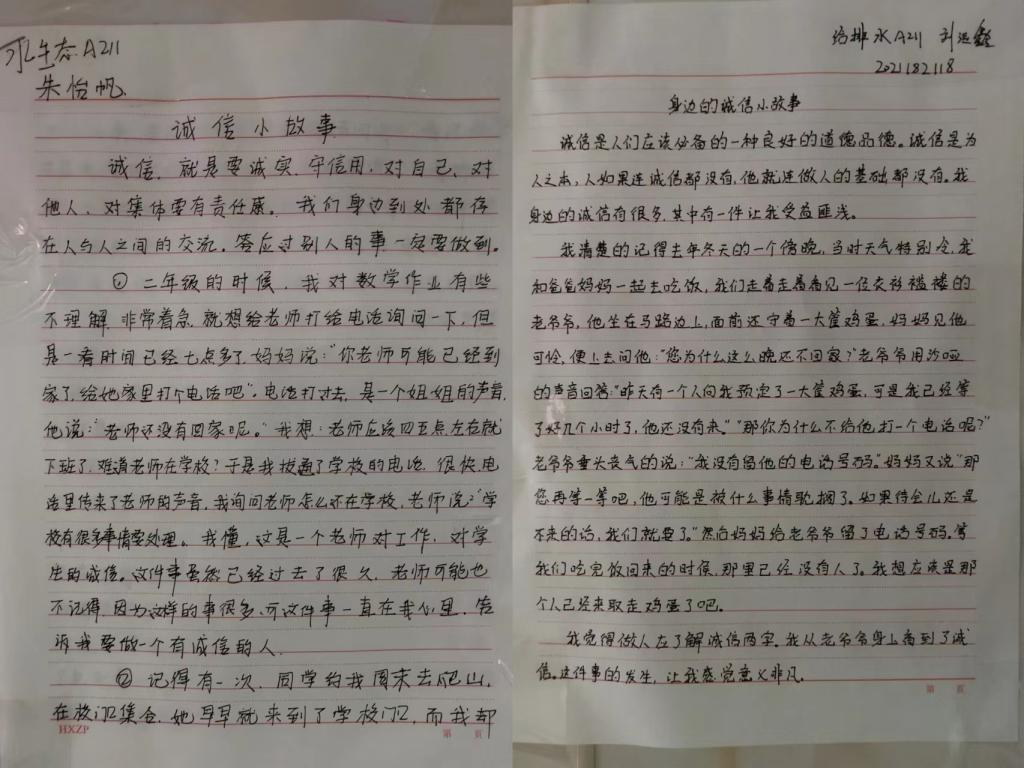 水生态A211
朱怡帆
诚信小故事
诚信,就是要诚实、守信用,对自己、对
他人、对集体要有责任感。我们身边到处都存
在人与人之间的交流,答应过别人的事一定要做到。
① 二年级的时候,我对数学作业有些
不理解,非常着急,就想给老师打给电话询问一下,但
是一看时间已经七点多了,妈妈说:“你老师可能已经到
家了,给她家里打个电话吧”,电话打过去,是一个姐姐的声音,
他说:“老师还没有回家呢。”我想:老师应该四五点左右就
下班了,难道老师在学校?于是我拨通了学校的电话,很快,电
话里传来了老师的声音,我询问老师怎么还在学校,老师说:“学
校有很多事情要处理。我懂,这是一个老师对工作,对学
生的诚信。这件事虽然已经过去了很久,老师可能也
不记得,因为这样的事很多,可这件事一直在我心里,告
诉我要做一个有诚信的人.
② 记得有一次,同学约我周末去爬山,
在校门口集合,她早早就来到了学校门口,而我却
HXZP
第 页
给排水A211 刘
2021182118
身边的诚信小故事
诚信是人们应该必备的一种良好的道德品德。诚信是为
人之本,人如果连诚信都没有,他就连做人的基础都没有。我
身边的诚信有很多,其中有一件让我受益匪浅。
我清楚的记得去年冬天的一个傍晚,当时天气特别冷,我
和爸爸妈妈一起去吃饭,我们走着走着看见一位衣衫褴褛的
老爷爷,他坐在马路边上,面前还守着一大筐鸡蛋,妈妈见他
可怜,便上去问他:“您为什么这么晚还不回家?”老爷爷用沙哑
的声音回答:“昨天有一个人向我预定了一大筐鸡蛋,可是我已经等
了好几个小时了,他还没有来。”“那你为什么不给他打一个电话呢?”
老爷爷垂头丧气的说:“我没有留他的电话号码。”妈妈又说“那
您再等一等吧,他可能是被什么事情耽搁了。如果待会儿还是
不来的话,我们就要了。”然后妈妈给老爷爷留了电话号码。等
我们吃完饭回来的时候,那里已经没有人了。我想应该是那
个人已经来取走鸡蛋了吧。
我觉得做人在了解诚信两字。我从老爷爷身上看到了诚
信。这件事的发生,让我感觉意义非凡.
第 页